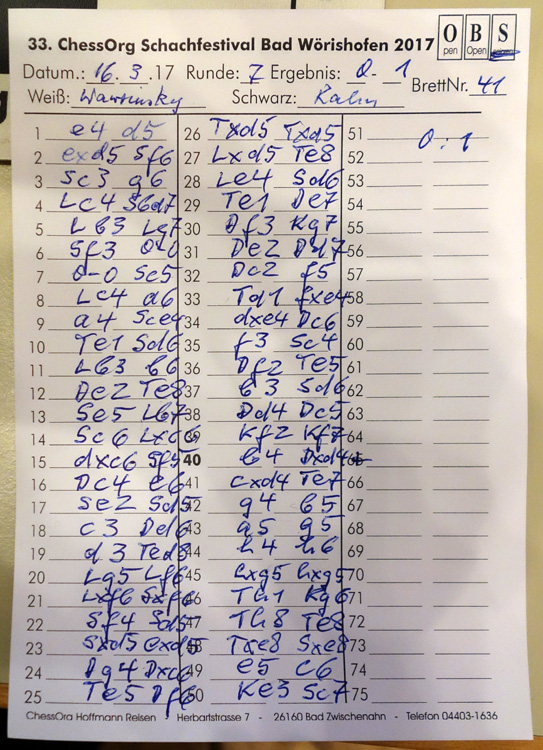 33. ChessOrg Schachfestival Bad Wörishofen 2017
O B S
pen Open
Datum.: 16.3.17 Runde: 7 Ergebnis: 0-1
BrettNr. 41
Weiß: Schwarz:
1 e4 d5
2 exd5 Sf6
3 Sc3 g6
4 Lc4 Sbd7
5 Lb3 Lg7
6 Sf3 0-0
7 0-0 Sc5
8 Lc4 a6
9 a4 Sce4
10 Te1 Sd6
11 Lb3 b6
12 De2 Te8
13 Se5 Lb7
14 Sc6 Lxc6
15 dxc6 Sf5
16 Dc4 e6
17 Se2 Sd5
18 c3 Dd6
19 d3 Ted8
20 Lg5 Lf6
21 Lxf6 Sxf6
22 Sf4 Sd5
23 Sxd5 exd5
24 Dg4 Dxc6
25 Te5 Df6
26 Txd5 Txd5
27 Lxd5 Te8
28 Le4 Sd6
29 Te1 De7
30 Df3 Kg7
31 De2 Dd7
32 Dc2 f5
33 Td1 fxe4
34 dxe4 Dc6
35 f3 Sc4
36 Df2 Te5
37 b3 Sd6
38 Dd4 Dc5
39 Kf2 Kf7
40 b4 Dxd4+
41 cxd4 Te7
42 g4 b5
43 a5 g5
44 h4 h6
45 hxg5 hxg5
46 Th1 Kg6
47 Th8 Te8
48 Txe8 Sxe8
49 e5 c6
50 Ke3 Sc7
51 0:1
52
53
54
55
56
57
58
59
60
61
62
63
64
65
66
67
68
69
70
71
72
73
74
75
ChessOrg Hoffmann Reisen - Herbartstrasse 7 - 26160 Bad Zwischenahn - Telefon 04403-1636